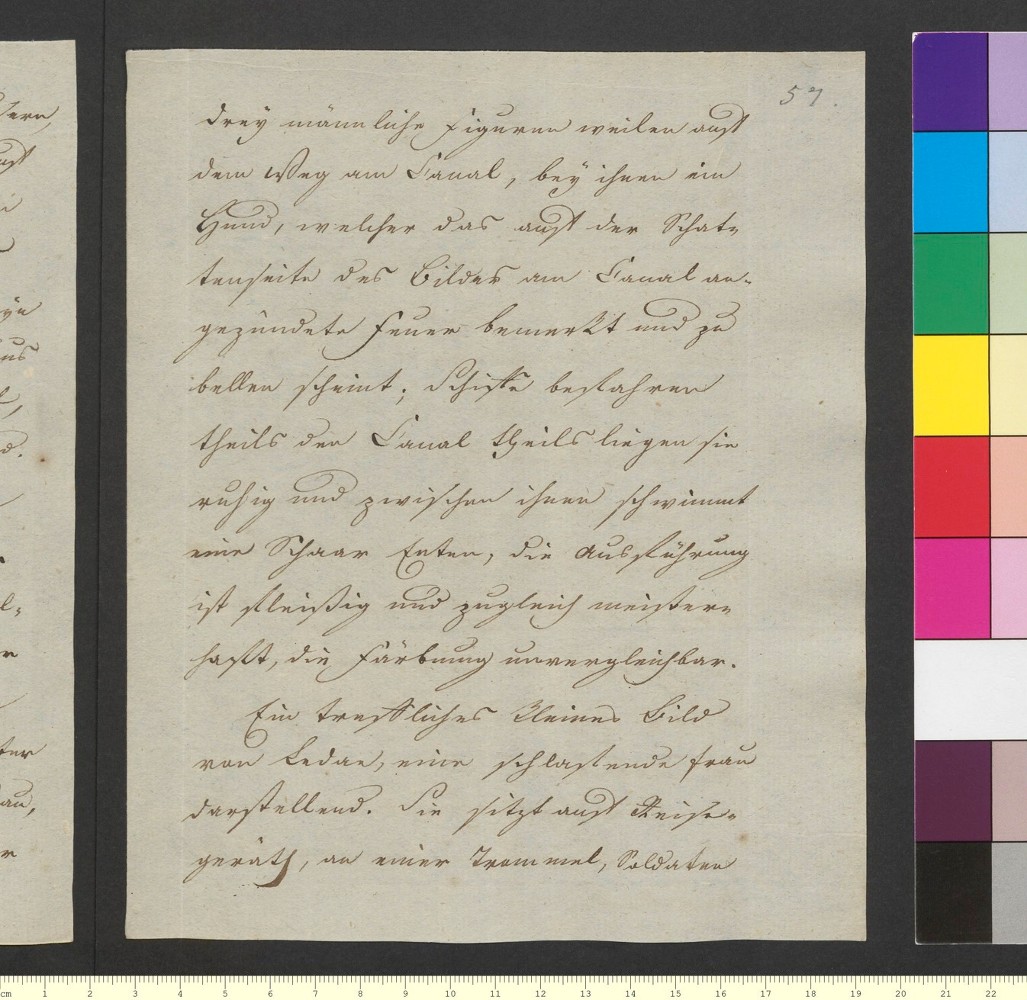 57.
drey männliche Figuren weilen auf
dem Weg am Canal, bey ihnen ein
Hund, welcher das auf der Schat-
tenseite des Bildes am Canal an-
gezündete Feuer bemerkt und zu
bellen scheint; Schiffe befahren
theils den Canal theils liegen sie
ruhig und zwischen ihnen schwimmt
eine Schaar Enten, die Ausführung
ist fleißig und zugleich meister-
haft, die Färbung unvergleichbar.
Ein treffliches kleines Bild
von Ledae, eine schlafende Frau
darstellend. Sie sitzt auf Reise-
geräth, an einer Trommel, Soldaten